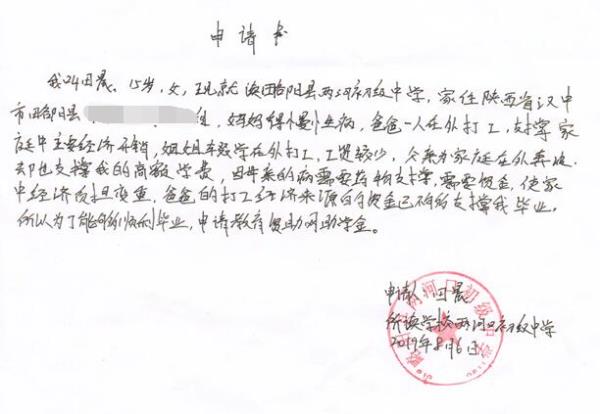 申请书
我叫田晨、15岁，女，现就读略阳县两河口初级中学，家住陕西省汉中
市略阳县
妈妈得了慢性病，爸爸一人在外打工，支撑家
庭中主要经济开销，姐姐辍学在外打工，工资较少，父亲为家庭在外奔波，
却也支撑我的高额学费，因母亲的病需要药物支撑，需要资金，使家
中经济负担变重，爸爸的打工经济来源的资金已不够支撑我毕业。
所以为了能够顺利毕业，申请教育资助网助学金。
申请人：田晨
所读学校：两河口初级中学
2019年8月6日
两河口初级中学